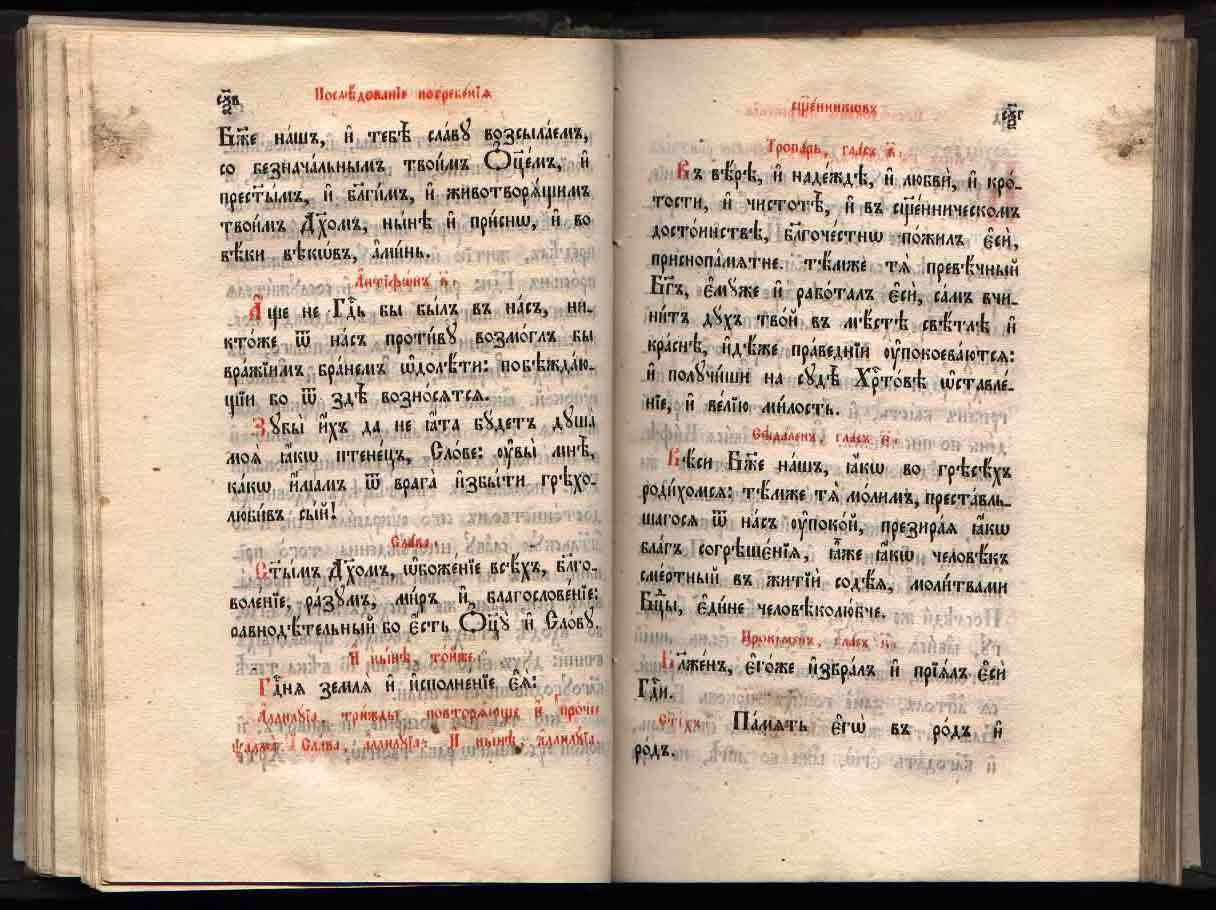 сѯ҃в
Послѣдованїе погребенїѧ
Бж҃е на́шъ, и҆ тебѣ̀ сла́вꙋ возсыла́емъ,
со безнача́льнымъ твои́мъ Ѻ҆ц҃е́мъ, и҆
прест҃ы́мъ, и҆ бл҃ги́мъ, и҆ животворѧ́щимъ
твои́мъ Дх҃омъ, ны́нѣ и҆ при́снѡ, и҆ во
вѣ́ки вѣкѡ́въ, а҆ми́нь.
А҆нтїфѡ́нъ и҃.
А҆́ще не Гдⷭ҇ь бы бы́лъ въ на́съ, ни-
кто́же ѿ на́съ проти́вꙋ возмо́глъ бы
вра́жїимъ бра́немъ ѡ҆долѣ́ти: побѣжда́ю-
щїи бо ѿ здѣ̀ возно́сѧтсѧ.
Зꙋбы̀ и҆́хъ да не ꙗ҆́та бꙋ́детъ дꙋша̀
моѧ̀ ꙗ҆́кѡ птене́цъ, Сло́ве: ᲂу҆вы̀ мнѣ̀,
ка́кѡ и҆́мамъ ѿ врага̀ и҆збы́ти грѣхо-
люби́въ сы́й!
Сла́ва,
Ст҃ы́мъ Дх҃омъ, ѡ҆боже́нїе всѣ́хъ, бл҃го-
воле́нїе, ра́зꙋмъ, ми́ръ и҆, благослове́нїе:
равнодѣ́тельный бо є҆́сть Ѻ҆ц҃ꙋ̀ и҆ Сло́вꙋ.
И҆ ны́нѣ то́йже.
Гдⷭ҇нѧ землѧ̀ и҆ и҆сполне́нїе є҆ѧ̀:
А҆ллилꙋ́їа, три́жды повторѧ́юще и҆ про́чее
ѱалма̀. Сла́ва, а҆ллилꙋ́їа: И҆ ны́нѣ а҆ллилꙋ́їа.
сщ҃е́нникѡвъ
сѯ҃г
Тропа́рь, гла́съ и҃.
Въ вѣ́рѣ, и҆ наде́ждѣ, и҆ любвѝ, и҆ кро́-
тости, и҆ чистотѣ̀, и҆ въ сщ҃е́нническомъ
досто́инствѣ, бл҃гоче́стнѡ по́жилъ є҆сѝ,
приснопа́мѧтне. тѣ́мже тѧ̀ превѣ́чный
Бг҃ъ, є҆мꙋ́же и҆ рабо́талъ є҆сѝ, са́мъ вчи-
ни́тъ дꙋ́хъ тво́й въ мѣ́стѣ свѣ́тлѣ и҆
кра́снѣ, и҆дѣ́же пра́веднїи ᲂу҆покоева́ютсѧ:
и҆ полꙋ́чиши на сꙋдѣ̀ Хрⷭ҇то́вѣ ѡ҆ставле́-
нїе, и҆ ве́лїю ми́лость.
Сѣда́ленъ, гла́съ и҃.
Вѣ́си Бж҃е на́шъ, ꙗ҆́кѡ во грѣсѣ́хъ
роди́хомсѧ: тѣ́мже тѧ̀ мо́лимъ, преста́вль-
шагосѧ ѿ на́съ ᲂу҆поко́й, презира́ѧ ꙗ҆́кѡ
бла́гъ согрѣше́нїѧ, ꙗ҆̀же ꙗ҆́кѡ человѣ́къ
сме́ртный въ житїѝ содѣ́ѧ, моли́твами
Бц҃ы, є҆ди́не человѣколю́бче.
Проки́менъ, гла́съ и҃.
Бл҃же́нъ, є҆го́же и҆збра́лъ и҆ прїѧ́лъ є҆сѝ
Гдⷭ҇и.
Сті́хъ: Па́мѧть є҆гѡ̀ въ ро́дъ и҆
ро́дъ.